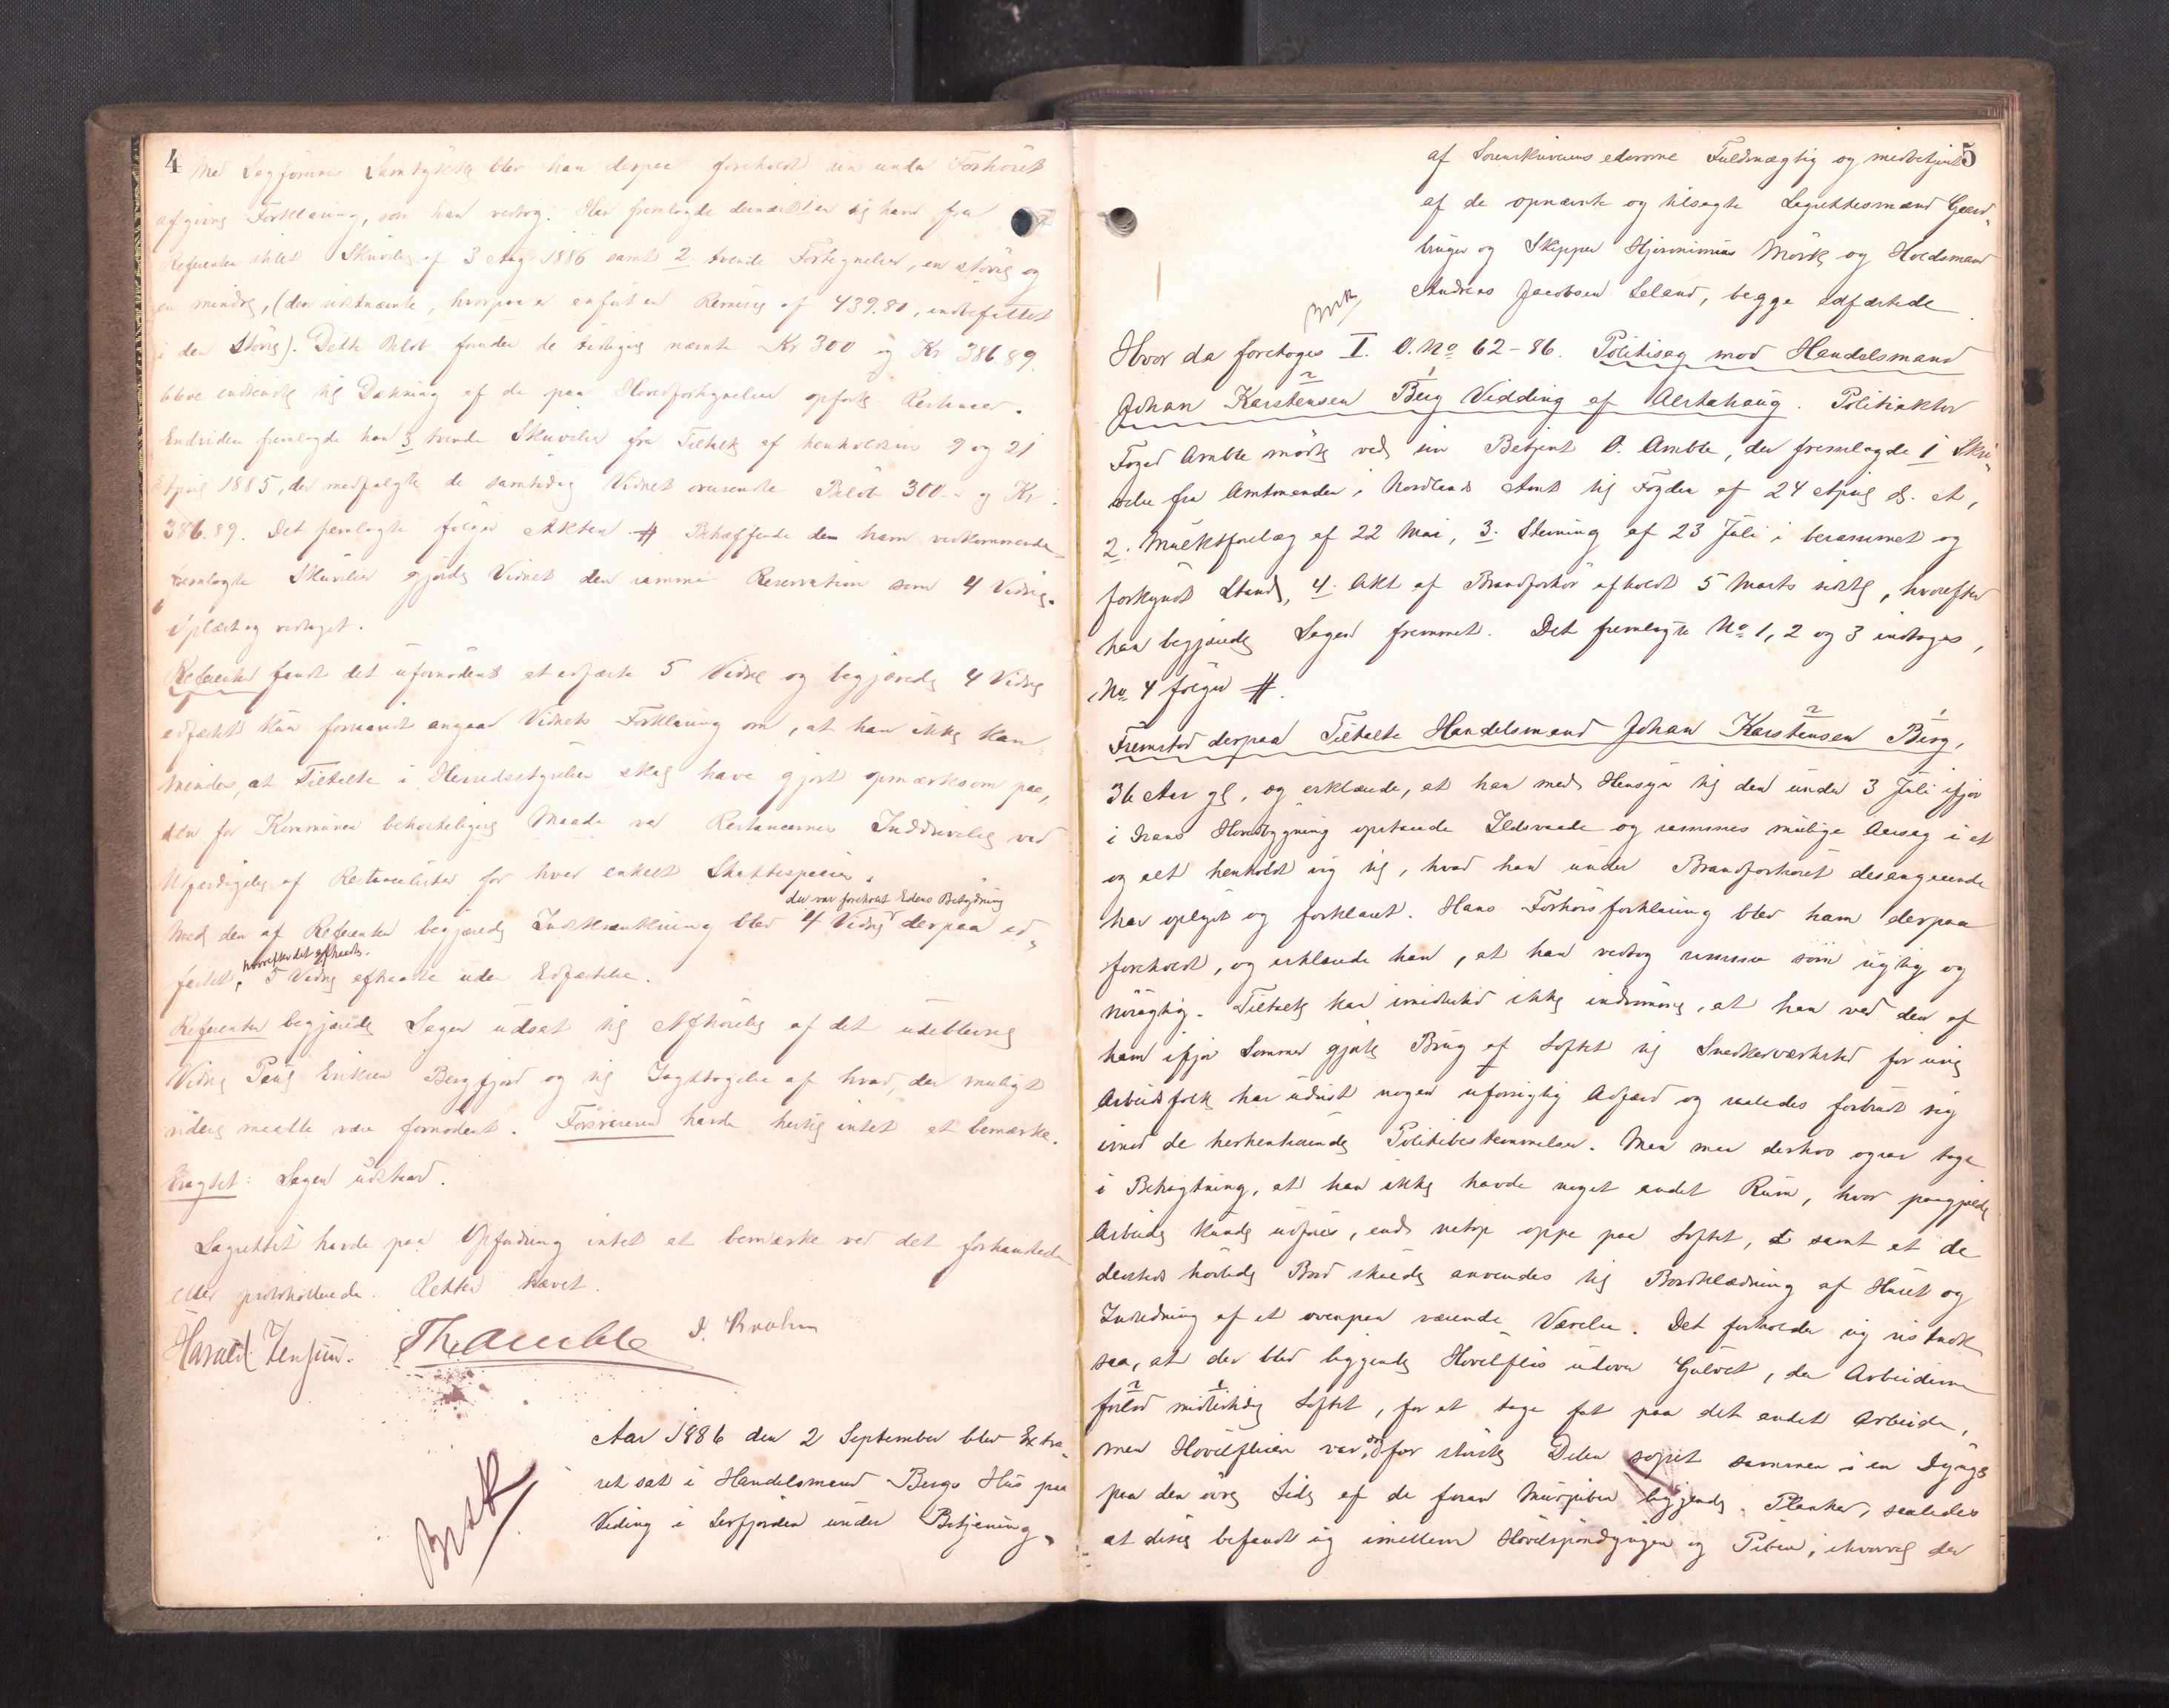 4
Med Lagførerens Samtykke blev han derpaa foreholdt sin under Forhøret
afgivne Forklaring, som han vedtog. Han fremlagde dernæst en til ham fra
Referenten stilet Skrivelse af 3 Aug 1886 samt 2 tvende Fortegnelser, en større og
en mindre, (den sidstnævnte, hvorpaa er anført en Remisse af 439.80, indbefattet
i den Større). Dette Beløb foruden de tidligere nævnte Kr 300 og Kr 386.89
bleve indsendte til Dækning af de paa Hovedfortegnelsen opførte Restancer.
Endvidere fremlagde han 3 trende Skrivelser fra Tiltalte af henholdsvis 9 og 21
April 1885, der medfulgte de samtidig Vidnet oversendte Beløb 300.- og Kr.
386.89. Det fremlagte følger Akten #. Betræffende den ham vedkommende
fremlagte Skrivelse gjorde Vidnet den samme Reservation som 4 Vidne.
Oplæst og vedtaget.
Referenten fandt det ufornødent at edfæste 5 Vidne og begjærede 4 Vidne
edfæstet kun forsaavidt angaar Vidnets Forklaring om, at han ikke kan
mindes, at Tiltalte i Herredsstyrelsen skal have gjort opmærksom paa,
den for Kommunen bekosteligere Maade ved Restancernes Inddrivelse ved
Udfærdigelse af Restancelister for hver enkelt Skattespecies.
der var foreholdt Edens Betydning
Med den af Referenten begjærede Indskrænkning blev 4 Vidne derpaa ed=
hvorefter det afhaedes.
fæstet, 5 Vidne afhaedes uden Edfæstelse.
Referenten begjærede Sagen udsat til Afhørelse af det udeblevne
Vidne Paul Eriksen Bergfjord og til Iagttagelse af hvad, der muligt
videre maatte være fornødent. Forsvareren havde hertil intet at bemærke.
Eragtet: Sagen udstaar.
Lagrettet havde paa Opfordring intet at bemærke ved det forhandlede
eller protokollerede. Retten hævet.
Harald Jensen. Th. Amble J. Brohn
Aar 1886 den 2 September blev Extra=
ret sat i Handelsmand Bergs Hus paa
Viding i Serfjorden under Betjening
5
af Sorenskriverens edsvorne Fuldmægtig og medbetjent
af de opnævnte og tilsagte Lagrettesmænd Gaard=
bruger og Skipper Hjeronimus Mørk og Huusmand
Andreas Jacobsen Seland, begge edfæstede
Hvor da foretoges I. O. No 62-86. Politisag mod Handelsmand
Johan Karstensen Berg Vidding af Alstahaug. Politiaktor
Foged Amble mødte ved sin Betjent O. Amble, der fremlagde 1 Skri=
velse fra Amtmanden i Nordlands Amt til Fogden af 24 April d. A,
2. Mulktsforelæg af 22 Mai, 3. Stevning af 23 Juli i berammet og
forkyndt Stand, 4. Akt af Brandforhør afholdt 5 Marts sidstl, hvorefter
han begjærede Sagen fremmet. Det fremlagte No 1, 2 og 3 indtages,
No 4 følger #.
Fremstod derpaa Tiltalte Handelsmand Johan Karstensen Berg,
36 Aar gl, og erklærede, at han med Hensyn til den under 3 Juli ifjor
i hans Hovedbygning opstaaede Ildsvaade og sammes mulige Aarsag i et
og alt henholdt sig til, hvad han under Brandforhøret desangaaende
har oplyst og forklaret. Hans Forhørsforklaring blev ham derpaa
foreholdt, og erklærede han, at han vedtog samme som rigtig og
nøiagtig. Tiltalte kan imidlertid ikke indrømme, at han ved den af
ham ifjor Sommer gjorte Brug af Loftet til Snedkerværksted for sine
Arbeidsfolk har udvist nogen uforsigtig Adfærd og saaledes forbrudt sig
imod de herhenhørende Politibestemmelser. Man maa derhos ogsaa tage
i Betragtning, at han ikke havde noget andet Rum, hvor paagjældende
Arbeide kunde udføres, end netop oppe paa Loftet, samt at de
dersteds høvlede Bord skulde anvendes til Bordklædning af Huset og
Indredning af et ovenpaa værende Værelse. Det forholder sig vistnok
saa, at der blev liggende Høvelflis udover Gulvet, da Arbeiderne
forlod midlertidig Loftet, for at tage fat paa det andet Arbeide,
men Høvelflisen var dog for største Delen sopet sammen i en Dynge
paa den øvre Side af de foran Murpiben liggende Planker, saaledes
at disse befandt sig imellem Høvelspondyngen og Piben, ihvorvel der